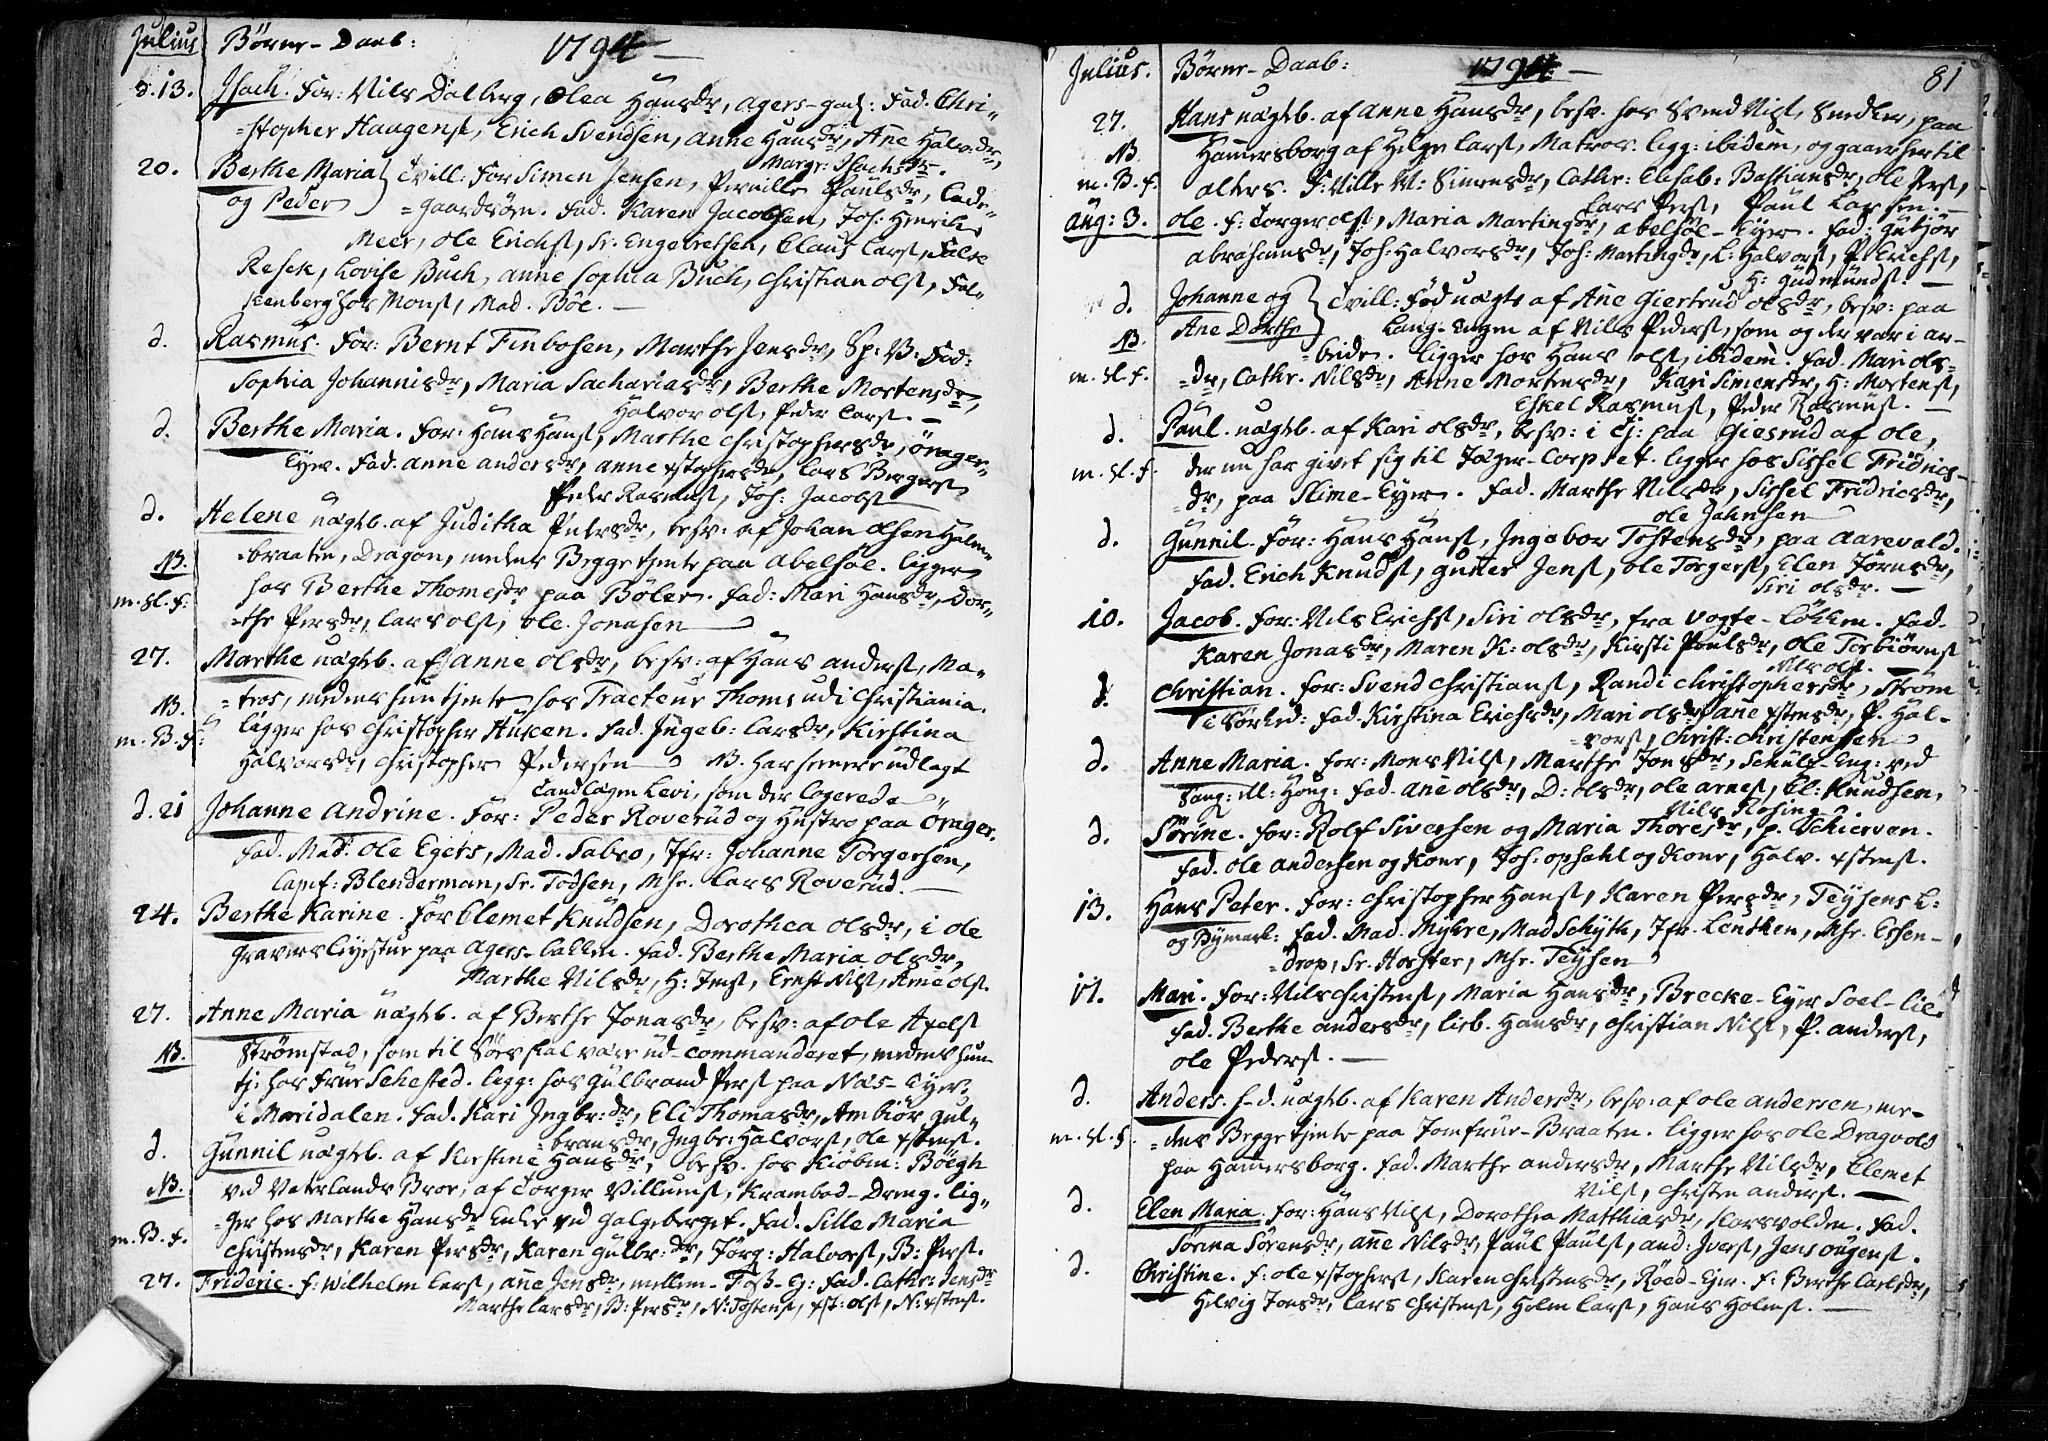 Julius Börne-Daab: 1794
d. 13. Isach. For: Nils Dalberg, Olea Hansdr, agers-gad: Fad. Chri-
stopher Haagenst, Erich Svendsen, Anne Hansdr, Ane Halv.dr,
Margr: Isachsdr.
20. Berthe Maria Tvill: For Simen Jensen, Pernille Paulsdr, Lade-
og Peder gaardsöen. Fad. Karen Jacobsen, Joh: Henrik
Meer, ole Erichs, Sr. Engebretsen, Claus Lars, Falk
Resck, Lovise Buch, anne Sophia Buch, Christian ols, Fal-
kenberg hos Mons, Mad. Böe.
d. Rasmus. For: Bernt Finbosen, Marthe Jensdr, Sp: V: Fad:
Sophia Johannisdr, Maria Sachariasdr, Berthe Mortensdr,
Halvor ols, Peder Lars.
d. Berthe Maria. For: Hans Hans, Marthe Christophersdr, örager-
Eyer. Fad. anne andersdr, anne xstophersdr, Lars Bergers
Peder Rasmus, Joh: Jacobs
d. Helene uægtb. af Juditha Pedersdr, besv: af Johan olsen Halm-
NB. braaten, Dragon, medens Begge tjente paa Abelsöe. ligger
m. sl. f. hos Berthe Thomesdr paa Böler. Fad: Mari Hansdr, Dor-
the Persdr, Lars ols, ole Jonasen
27. Marthe uægtb. af Anne olsdr, besv: af Hans anders, Ma-
NB. tros, medens hun tjente hos Tracteur Thoms udi Christiania.
m. B. f. ligger hos Christopher Huscen. Fad. Ingeb: Larsdr, Kirstina
Halvorsdr, Christopher Pedersen NB. Har senere udlagt
Tandlægen Levi, som der logerede
d. 21 Johanne Andrine. For: Peder Roverud og Hustro paa örager.
Fad. Mad: ole Egers, Mad. Sabro, Jfr: Johanne Torgersen,
Capt: Blenderman, Sr. Todsen, Mhr. Lars Roverud.
24. Berthe Karine. For Clemet Knudsen, Dorothea olsdr, i ole
Gravers Leyestue paa Agers-bakken. Fad. Berthe Maria olsdr,
Marthe Nilsdr, H: Jens, Ernst Nils, Arne ols.
27. Anne Maria uægtb. af Berthe Jonasdr, besv: af ole Axels
NB. Strömstad, som til Söes skal være ud-commanderet, medens hun
tj: hos Frue Sehested. ligg: hos Gulbrand Pers paa Næs-Eyer
i Maridalen. Fad. Kari Ingbr:dr, Eli Thomasdr, Ambiör Gul-
bransdr, Ingbr: Halvors, ole xstens.
d. Gunnil uægtb. af Kirstine Hansdr, besv. hos Kiöbm: Böegh
NB. ved Vaterlands Broe, af Torger Villums, Krambod-Dreng. lig-
m. B. f. ger hos Marthe Hansdr Enke ved Galgeberget. Fad. Sille Maria
Christensdr, Karen Persdr, Karen Gulbr:dr, Jörg: Halvors, B: Pers.
27. Frideric. f: Wilhelm Lars, Ane Jensdr, mellem-Tös-E: Fad. Cathr: Jensdr
Marthe Larsdr, B: Persdr, N: Tostens, xst: ols, N: xstens.
Julius. Börne-Daab: 1794 81
27. Hans uægtb. af Anne Hansdr, besv. hos Svend Nils, Smeder, paa
NB. Hamersborg af Helge Lars, Matros. ligg: ibidem, og gaar her til
m. B. f. alters. F: Nille M: Simensdr, Cathr: Elisab: Bastiansdr, ole Pers,
Lars Pers, Paul Larsen.
Aug: 3. ole. f: Torger ols, Maria Martinsdr, abelsöe-Eyer. Fad: Gutjör
abrahamsdr, Joh: Halvorsdr, Joh: Martinsdr, L: Halvors, P. Erichs,
H: Gudmunds.
d. Johanne og Tvill: Fød uægte af Ane Giertrud olsdr, besv: paa
NB. Ane Dorthe Lang-Engen af Nils Peders, som og der var i ar-
m. sl. f. beide. ligger hos Hans ols, ibidem. Fad. Mari ols-
dr, Cathr. Nilsdr, Anne Mortensdr, Kari Simensdr, H: Mortens,
Eskel Rasmus, Peder Rasmus.
d. Paul. uægtb. af Kari olsdr, besv: i tj: paa Giesrud af ole,
m. sl. f. der nu har givet sig til Jæger-Corpset. ligger hos Sissel Fridrics-
dr, paa Slime-Eyer. Fad. Marthe Nilsdr, Sissel Fridricsdr,
ole Johnsen
d. Gunnil. For: Hans Hans, Ingebor Tostensdr, paa Aarevold.
Fad. Erich Knuds, Guner Jens, ole Torgers, Elen Törnsdr,
Siri olsdr.
10. Jacob. For: Nils Erichs, Siri olsdr, fra Vogte-Lökken. Fad.
Karen Jonasdr, Maren K: olsdr, Kirsti Poulsdr, ole Torbiörns
Nils ols.
d. Christian. For: Svend Christians, Randi Christophersdr, Ström
i Sörked: Fad. Kirstina Erichsdr, Mari olsdr, ane xstensdr, P. Hal-
vors, Christ: Christensen
d. Anne Maria. For: Mons Nils, Marthe Jonsdr, Schultz-Eng: ved
Sang: M: Höng: Fad. Ane olsdr, D: olsdr, ole arnes, El: Knudsen,
Nils Rosing
d. Sörine. For: Rolf Siversen og Maria Thoresdr, p. Schierven.
Fad. ole andersen og Kone, Joh: opsahl og Kone, Halv. xstens.
13. Hans Peter. For: Christopher Hans, Karen Persdr, Teysens L:
og Bymark: Fad. Mad. Myhre, Mad Schyth, Jfr. Lenthen, Mhr. Essen-
drop, Sr. Horster, Mhr. Teysen
17. Mari. For: Nils Christens, Maria Hansdr, Brecke-Eyer Soel-lie.
Fad. Berthe andersdr, Lisb. Hansdr, Christian Nils, P. anders,
ole Peders.
d. Anders. f-d. uægtb. af Karen Andersdr, besv: af ole andersen, me-
m. sl. f. dens Begge tjente paa Jomfrue-Braaten. ligger hos ole Dragvold
paa Hamersborg. Fad. Marthe andersdr, Marthe Nilsdr, Clemet
Nils, Christen anders.
d. Elen Maria. For: Hans Nils, Dorothea Matthiasdr, Korsvolden. Fad.
Sörina Sörensdr, ane Nilsdr, Paul Pauls, and: Ivers, Jens ougens.
d. Christine. f: ole xstophers, Karen Christensdr, Röed-Eyer. f: Berthe Carlsdr,
Helvig Jonsdr, Lars Christens, Holm Lars, Hans Holms.